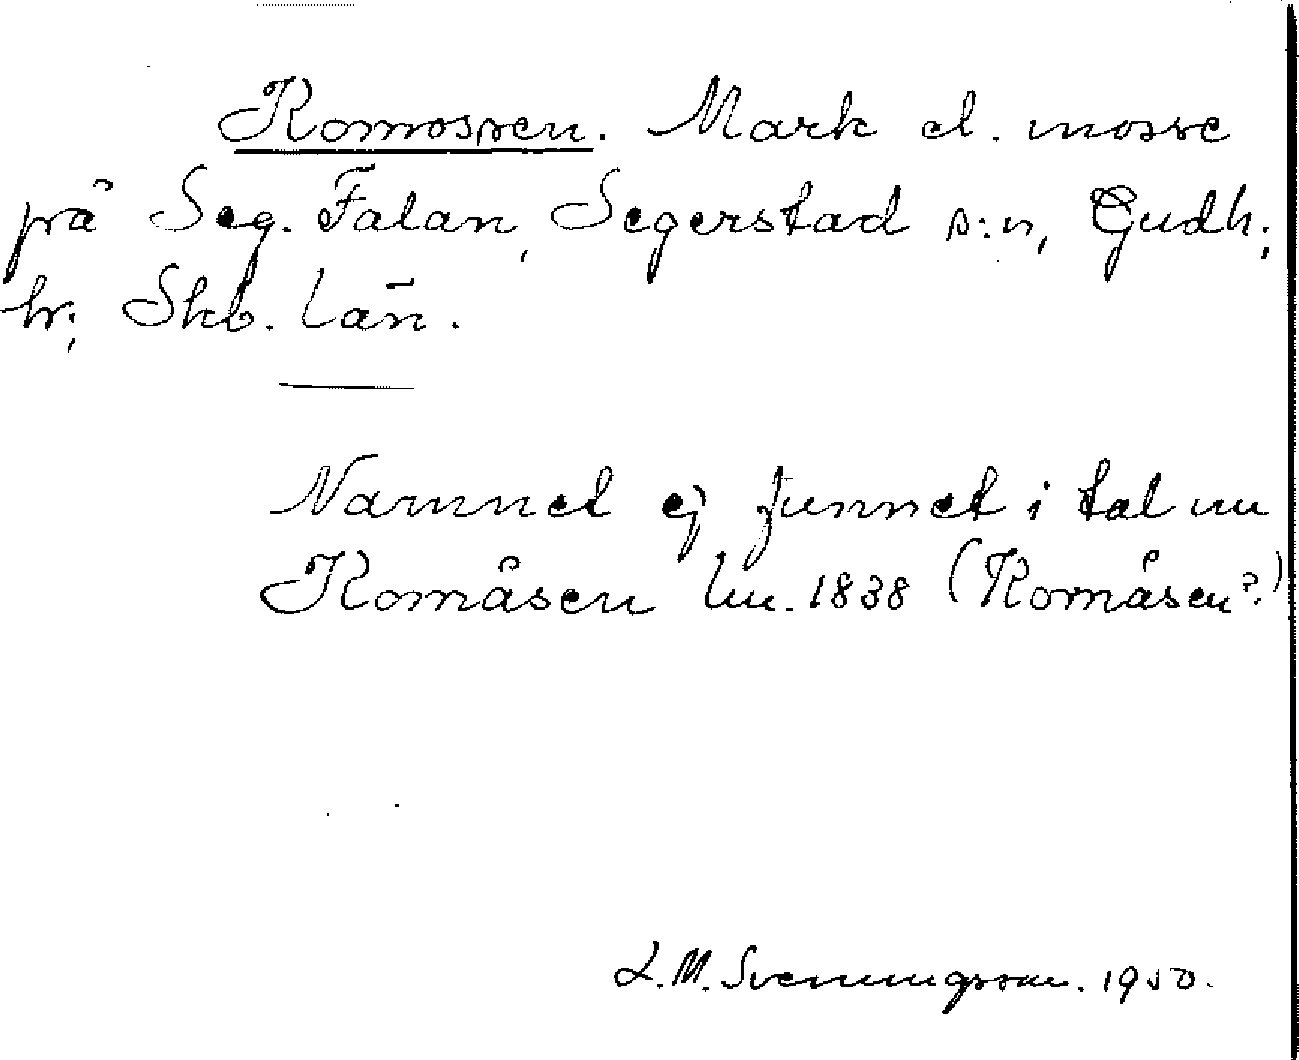 Romossen. Mark el. mosse
på Seg. Falan, Segerstad s:n, Gudh.
hr; Skb. län.
Namnet ej funnet i tal nu
Romåsen lm. 1838 (Romåsen?)
L. M. Svenungsson. 1950.